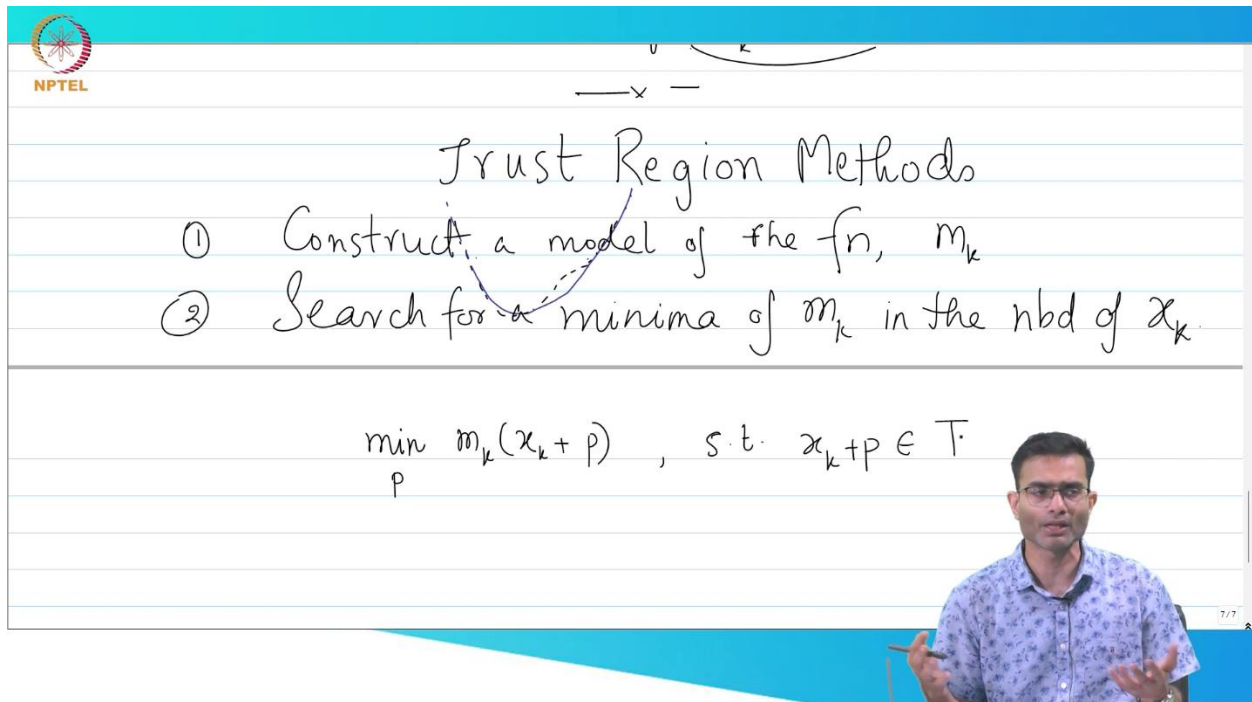 NPTEL
k
Trust Region Methods
① Construct a model of the fn, mₖ
② Search for a minima of mₖ in the nbd of xₖ.
min mₖ(xₖ + p) , s.t. xₖ+p ∈ T.
p
7/7